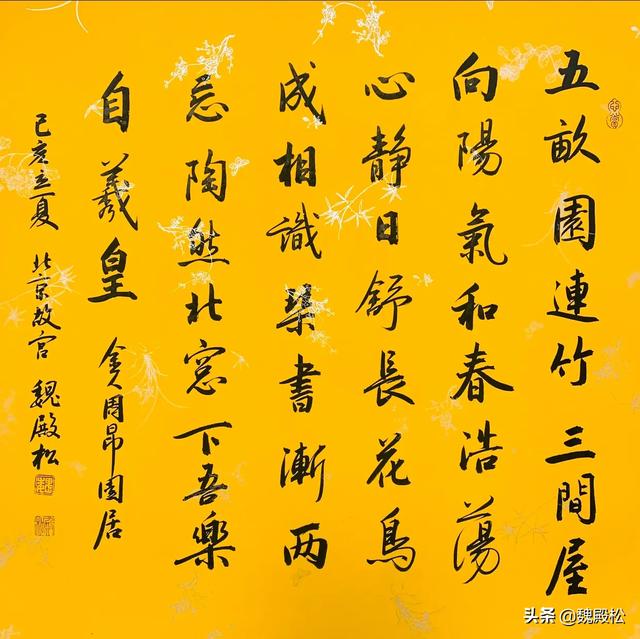 五畝園連竹三間屋
向陽氣和春浩蕩
心静日舒長花鳥
成相識琴書漸两
忘陶然北窓下吾樂
自羲皇 金周昂園居
己亥立夏 北京故宫 魏殿松
头条 @魏殿松